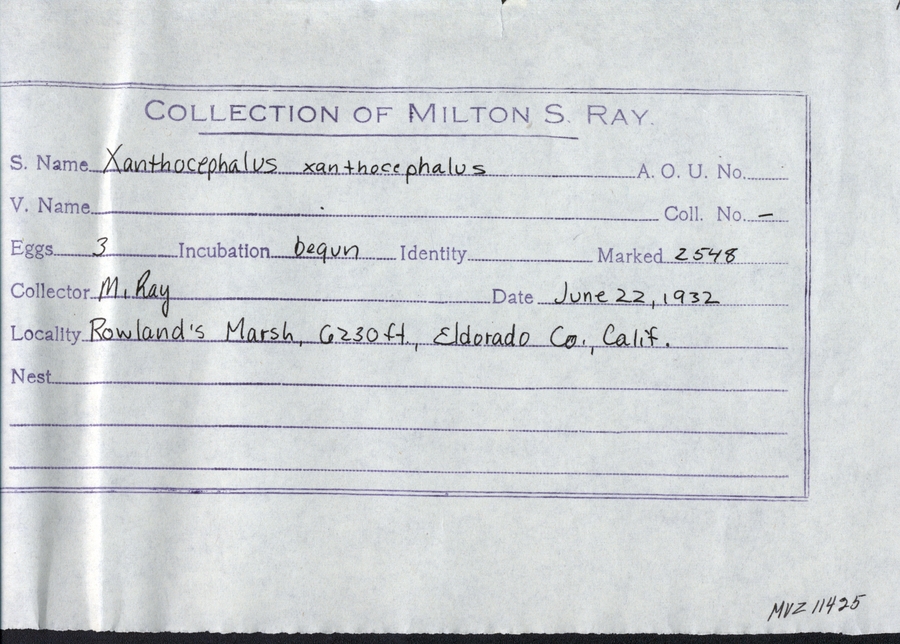 COLLECTION OF MILTON S. RAY.
S. Name Xanthocephalus xanthocephalus A. O. U. No.
V. Name Coll. No. –
Eggs 3 Incubation begun Identity Marked 2548
Collector M. Ray Date June 22, 1932
Locality Rowland's Marsh, 6230 ft., Eldorado Co., Calif.
Nest
MVZ 11425